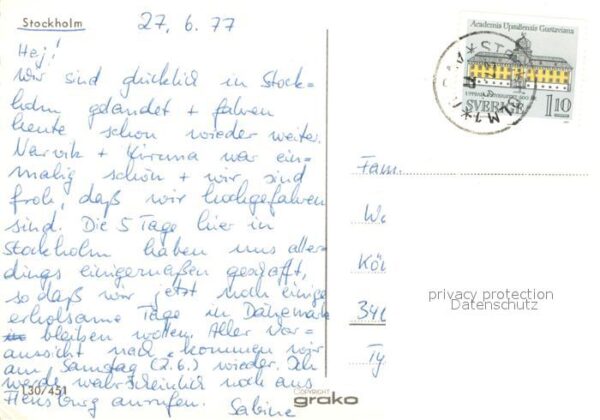 Stockholm
27.6.77
Hej!
Wir sind glücklich in Stock=
holm gelandet + fahren
heute schon wieder weiter.
Narvik + Kiruna war ein=
malig schön + wir sind
froh, daß wir hochgefahren
sind. Die 5 Tage hier in
Stockholm haben uns aller=
dings einigermaßen geschafft,
so daß wir jetzt noch einige
erholsame Tage in Dänemark
bleiben wollen. Aller Vor=
aussicht nach kommen wir
am Samstag (2.6.) wieder. Ich
werde wahrscheinlich noch aus
Flensburg anrufen.
Sabine
L30/451
COPYRIGHT
grako
Academia Upsaliensis Gustaviana
SVERIGE 1.10
Fam.
privacy protection
Datenschutz